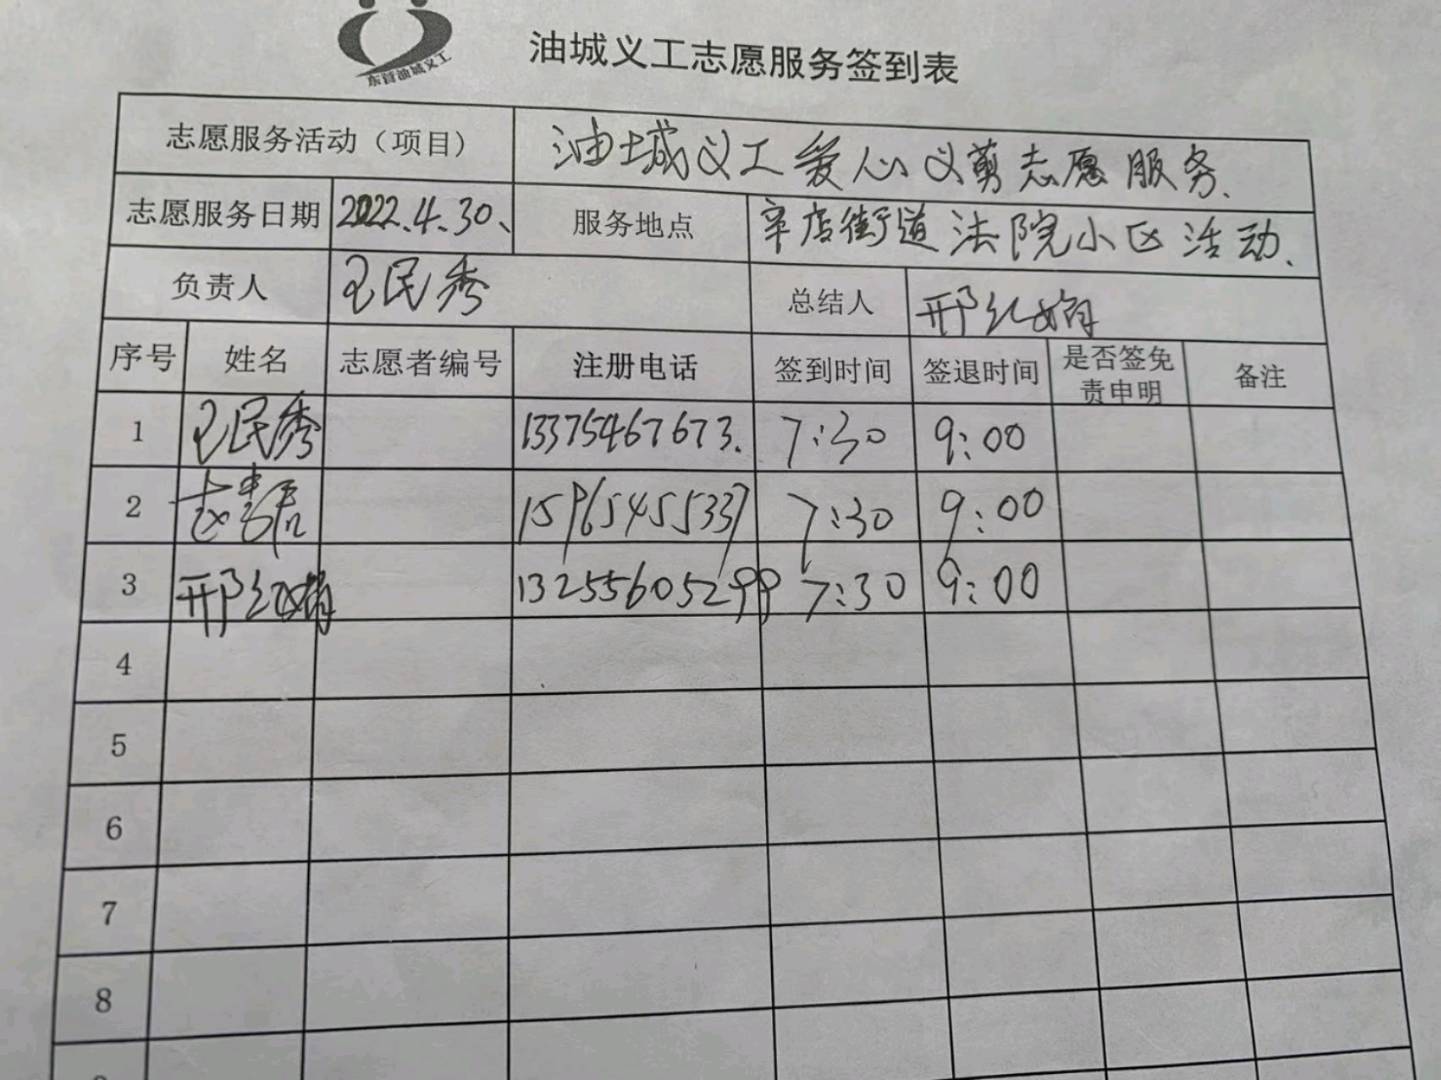 东营油城义工
油城义工志愿服务签到表
志愿服务活动（项目） 油城义工爱心义剪志愿服务.
志愿服务日期 2022.4.30、 服务地点 辛店街道法院小区活动.
负责人 王民秀 总结人 邢红娟
序号 姓名 志愿者编号 注册电话 签到时间 签退时间 是否签免责申明 备注
1 王民秀 13375467673. 7:30 9:00
2 15965455337 7:30 9:00
3 邢红娟 13255605299 7:30 9:00
4
5
6
7
8